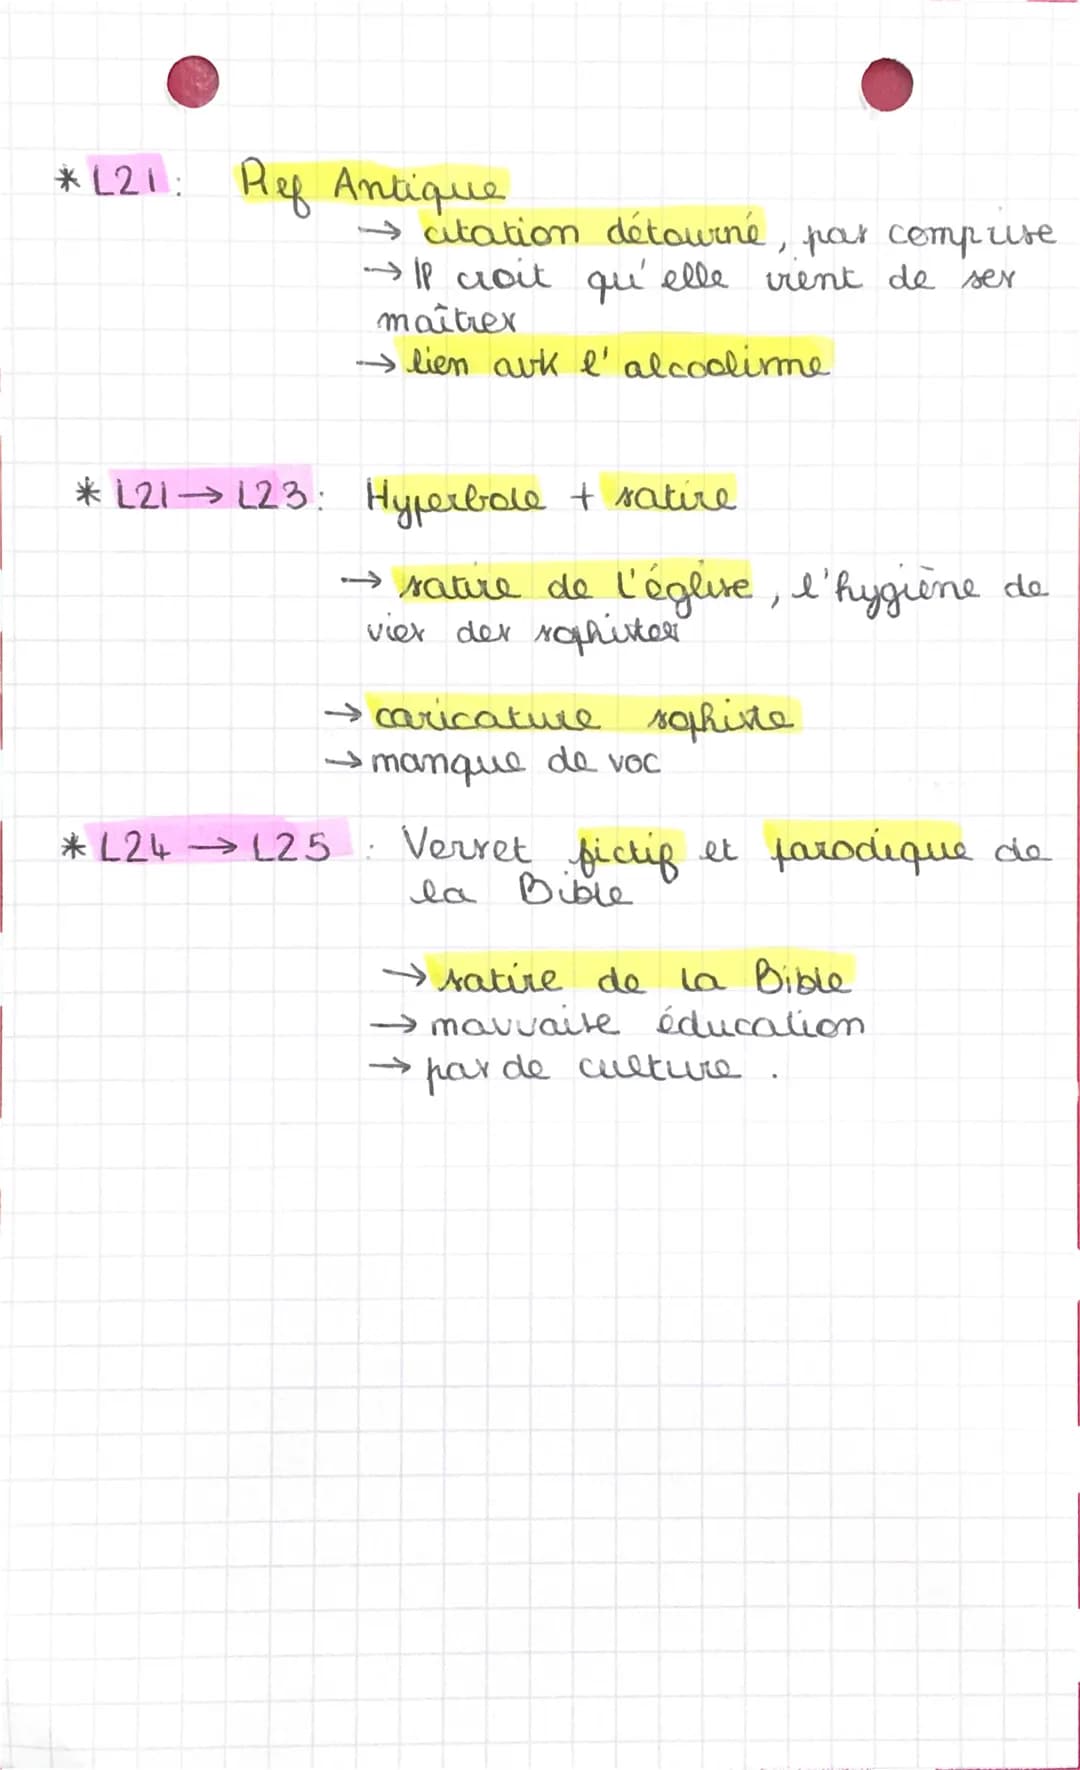 * L21 : Ref Antique
→ citation détourné, pas comprise
→ Il croit qu'elle vient de ses
maîtres
→ lien avk l'alcoolisme
* L21 → L23 : Hyperbole + satire
→ satire de l'église, l'hygiène de
vies des sophistes
→ caricature sophiste
→ manque de voc
* L24 → L25 : Verset fictif et parodique de
la Bible
→ satire de la Bible
→ mauvaise éducation
→ pas de culture .